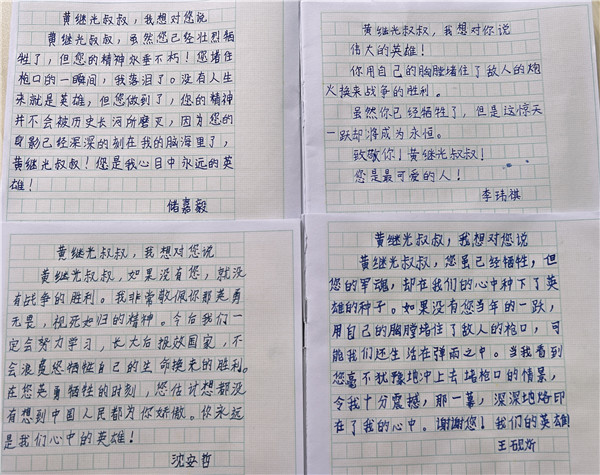 黄继光叔叔，我想对您说
黄继光叔叔，虽然您已经壮烈牺
牲了，但您的精神永垂不朽！您堵住
枪口的一瞬间，我落泪了。没有人生
来就是英雄，但您做到了，您的精神
并不会被历史长河所磨灭，因为您的
身影已经深深的刻在我的脑海里了，
黄继光叔叔！您是我心目中永远的英
雄！
储嘉毅
黄继光叔叔，我想对你说
伟大的英雄！
你用自己的胸膛堵住了敌人的炮
火换来战争的胜利。
虽然你已经牺牲了，但是这惊天
一跃却将成为永恒。
致敬你！黄继光叔叔！
您是最可爱的人！
李玮祺
黄继光叔叔，我想对您说
黄继光叔叔，如果没有您，就没
有战争的胜利。我非常敬佩你那英勇
无畏，视死如归的精神。今后我们一
定会努力学习，长大后报效国家，不
会浪费您牺牲自己的生命换来的胜利。
在您英勇牺牲的时刻，您估计想都没
有想到中国人民都为你骄傲。你永远
是我们心中的英雄！
沈安哲
黄继光叔叔，我想对您说
黄继光叔叔，您虽已经牺牲，但
您的军魂，却在我们的心中种下了英
雄的种子。如果没有您当年的一跃，
用自己的胸膛堵住了敌人的枪口，可
能我们还生活在弹雨之中。当我看到
您毫不犹豫地冲上去堵枪口的情景，
令我十分震撼，那一幕，深深地烙印
在了我的心中。谢谢您！我们的英雄
王砚炘